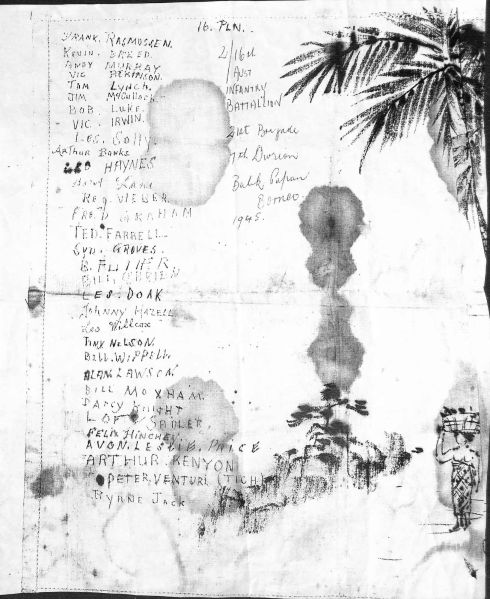 16. PLN.
FRANK. RASMUSSEN.
KEVIN. BREED.
ANDY MURRAY
VIC PERKINSON.
TOM LYNCH.
JIM. McCULLOCH
BOB. LUKE.
VIC. IRWIN.
LES. Solly.
Arthur Banks
LEO HAYNES
Lane
REG VIEBER
FRED GRAHAM
TED. FARRELL
SYD. GROVES.
B. FLITHER
BILL. O'BRIEN
LES. DOAK
JOHNNY HAZELL
Les Willcox
TINY NELSON.
BILL. WIPPELL.
ALAN. LAWSON.
BILL MOXHAM.
DARCY KNIGHT
LOFTY SADLER.
FELIX HINCHEY.
AVON. LESLIE. PRICE
ARTHUR. KENYON
PETER. VENTURI (TICH)
BYRNE JACK
2/16th
AUST
INFANTRY
BATTALION
21st Brigade
7th Division
Balik Papan
Borneo
1945.